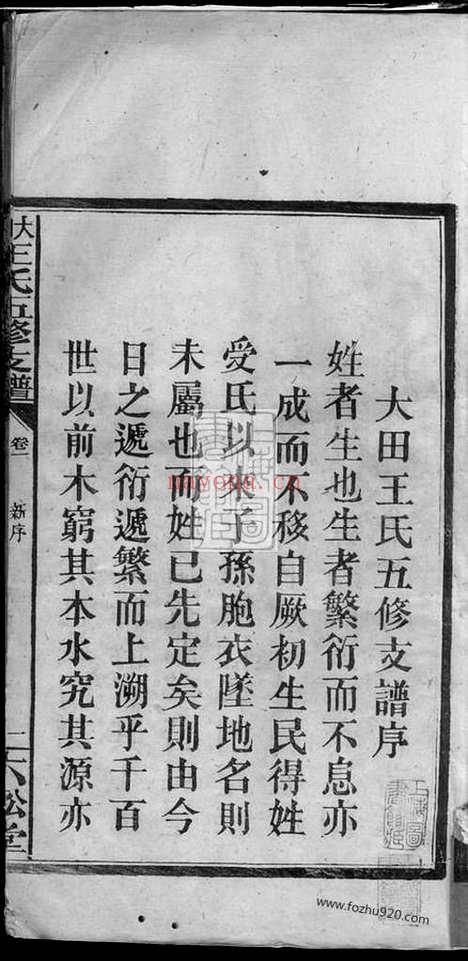 大田王氏五修支譜序
姓者生也生者繁衍而不息亦
一成而不移自厥初生民得姓
受氏以來子孫胞衣墜地名則
未屬也而姓已先定矣則由今
日之遞衍遞繁而上溯乎千百
世以前木窮其本水究其源亦
王氏五修支譜
卷一
新序
二
松堂
nayona.cn
www.fozhu920.com